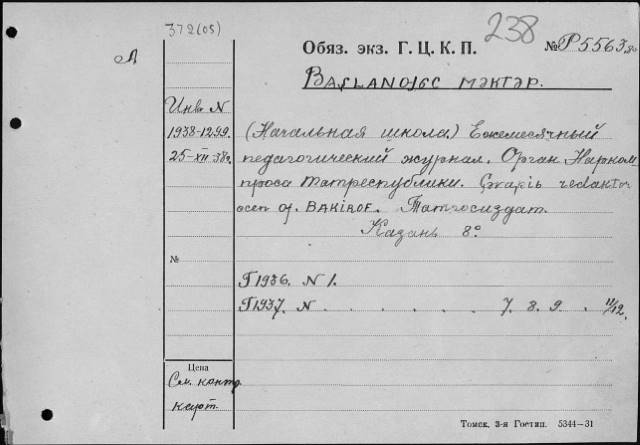 372(05)
238
A
Обяз. экз. Г. Ц. К. П. №Р5563 80
BAŞLANƢЬC MƏKTƏP.
Инв N
1938-1299.
25-XII-38г.
(Начальная школа) Ежемесячный
педагогический журнал. Орган Нарком-
проса Татреспублики. Çavaplь redaktor
ocen Ƣ. BAKIROF. Татгосиздат.
Казань 8°
№
Г1936. N 1.
Г1937. N . . . . . . 7. 8. 9 . 11/12.
Цена
См. контр.
карт.
Томск. 3-я Гостип. 5344—31